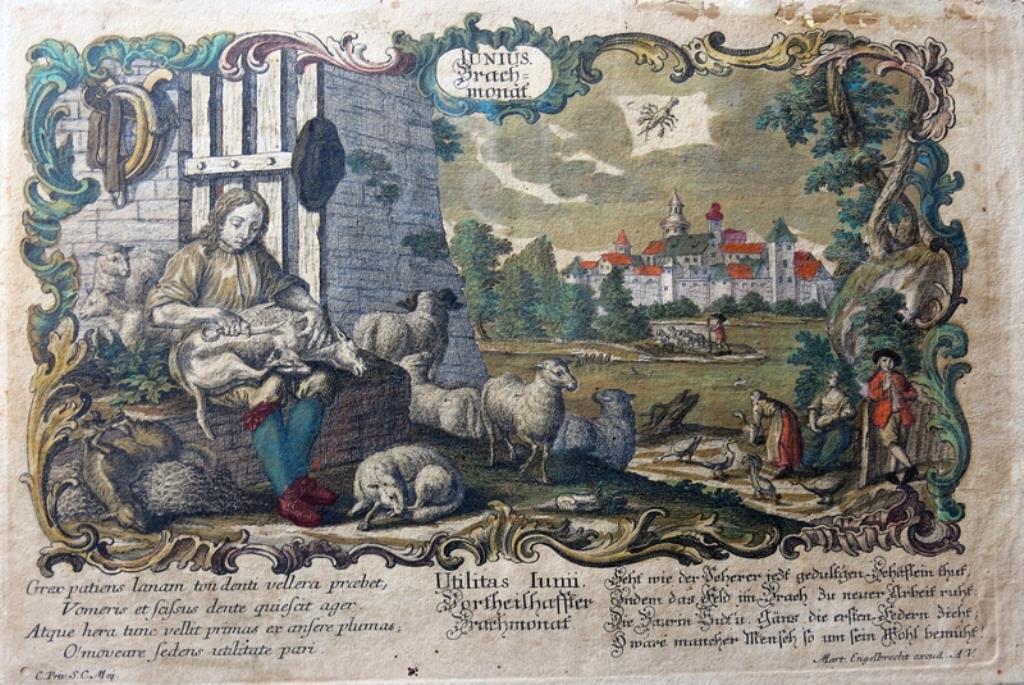 IUNIUS.
Brach=
monat
Grex patiens lanam tondenti vellera præbet,
Vomeris et scissus dente quiescit ager.
Atque hera tunc vellit primas ex ansere plumas;
O! moveare sedens utilitate pari.
Utilitas Iunii.
Vortheilhaffter
Brachmonat
Seht wie der Scherer jezt gedultigen Schafflein thut,
Indem das Feld im Brach zu neuer Arbeit ruht.
Die Baurin Endt u. Gäns die ersten Federn zieht;
O wäre mancher Mensch so um sein Wohl bemüht!
C. Priv. S. C. Maj.
Mart. Engelbrecht excud. A.V.